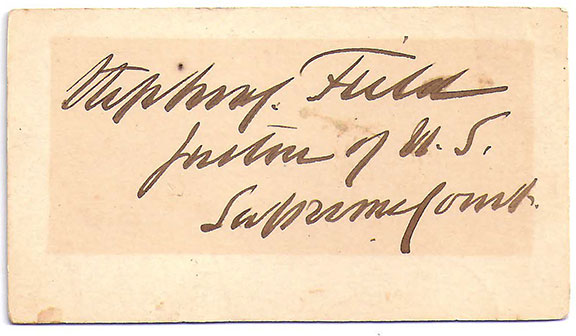 Stephen J. Field
Justice of U.S.
Supreme Court.